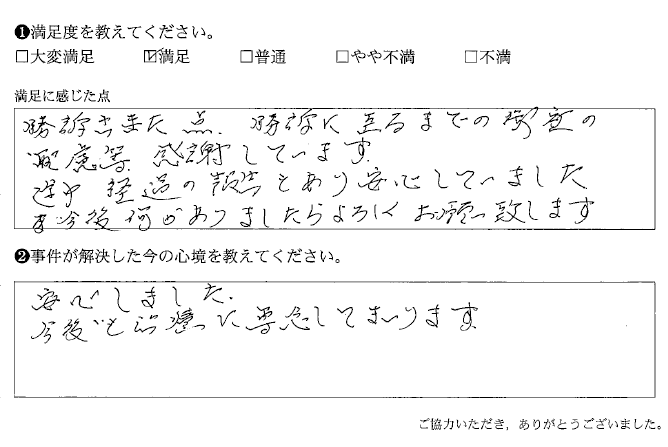 ❶満足度を教えてください。
□大変満足 ☑満足 □普通 □やや不満 □不満
満足に感じた点
勝訴出来た点. 勝訴に至るまでの
配慮等 感謝しています.
途中 経過の報告もあり安心していました
今後何かありましたらよろしくお願い致します
❷事件が解決した今の心境を教えてください。
安心しました.
今後とも治療に専念してまいります.
ご協力いただき，ありがとうございました。